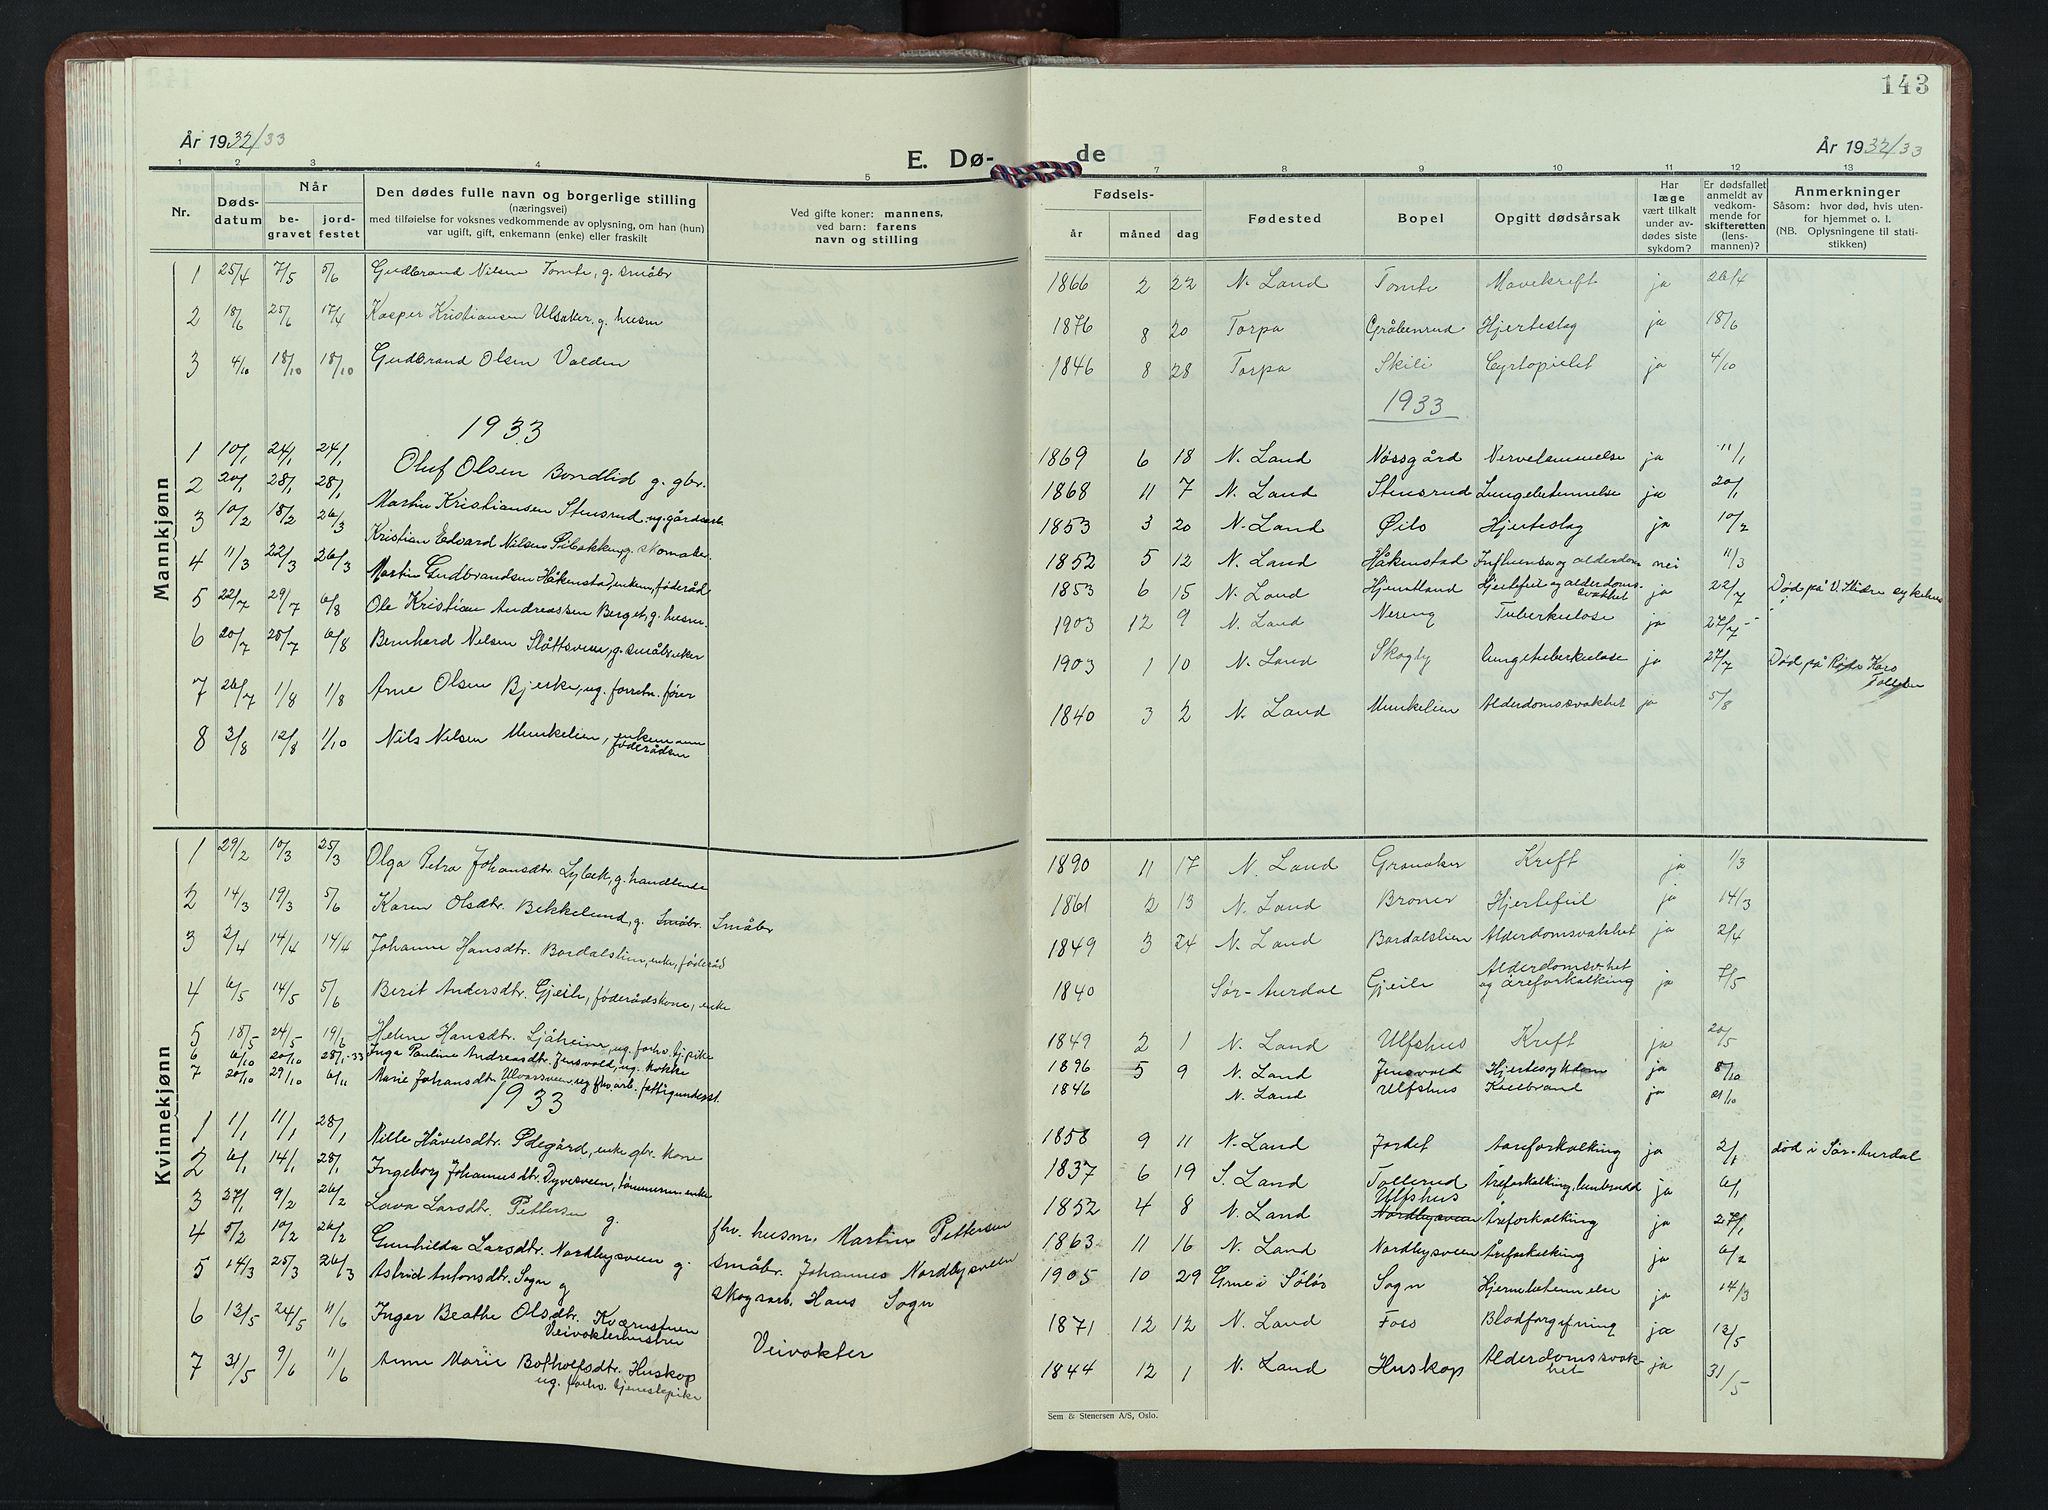 143
År 1932/33
E. Dø-
de
År 1932/33
1 2 3 4 5 7 8 9 10 11 12 13
Nr.
Døds-
datum
Når
be-
gravet
jord-
festet
Den dødes fulle navn og borgerlige stilling
(næringsvei)
med tilføielse for voksnes vedkommende av oplysning, om han (hun)
var ugift, gift, enkemann (enke) eller fraskilt
Ved gifte koner: mannens,
ved barn: farens
navn og stilling
Fødsels-
år
måned
dag
Fødested
Bopel
Opgitt dødsårsak
Har
læge
vært tilkalt
under av-
dødes siste
sykdom?
Er dødsfallet
anmeldt av
vedkom-
mende for
skifteretten
(lens-
mannen)?
Anmerkninger
Såsom: hvor død, hvis uten-
for hjemmet o. l.
(NB. Oplysningene til stati-
stikken)
Mannkjønn
1 25/4 7/5 5/6 Gudbrand Nilsen Tomte, g. småbr 1866 2 22 N. Land Tomte Mavekreft ja 26/4
2 18/6 25/6 17/4 Kasper Kristiansen Ulsaker, g. husm 1876 8 20 Torpa Gråbenrud Hjerteslag ja 18/6
3 4/10 18/10 18/10 Gudbrand Olsen Volden 1846 8 28 Torpa Skili ja 4/10
1933
1933
1 10/1 24/1 24/1 Oluf Olsen Bondlid g. gbr. 1869 6 18 N. Land Nøssgård Nervelammelse ja 11/1
2 20/1 28/1 28/1 Martin Kristiansen Stensrud, ug. gårdsarb. 1868 11 7 N. Land Stensrud Lungebetennelse ja 20/1
3 10/2 18/2 26/3 Kristian Edvard Nilsen g. skomaker. 1853 3 20 N. Land Øilo Hjerteslag ja 10/2
4 11/3 22/3 26/3 Martin Gudbrandsen Håkenstad, enkem, føderåd 1852 5 12 N. Land Håkenstad Influensa og alderdom nei 11/3
5 22/7 29/7 6/8 Ole Kristian Andreassen Berget, g. husm. 1853 6 15 N. Land Hjemtland Hjertefeil og alderdoms-
svakhet ja 22/7 Død på V. Slidre sykehus
6 20/7 25/7 6/8 Bernhard Nilsen Slåttsveen, g. småbruker 1903 12 9 N. Land Nereng Tuberkulose ja 27/7
7 26/7 1/8 1/8 Arne Olsen Bjerke, ug. forretn. fører 1903 1 10 N. Land Skogly Lungetuberkulose ja 27/7 Død på Røde Kors
8 3/8 12/8 1/10 Nils Nilsen Munkelien, enkemann
føderådsm 1840 3 2 N. Land Munkelien Alderdomssvakhet ja 5/8
Kvinnekjønn
1 29/2 10/3 25/3 Olga Petra Johansdtr. Lybæk, g. handlende 1890 11 17 N. Land Granaker Kreft ja 1/3
2 14/3 19/3 5/6 Karen Olsdtr. Bekkelund, g. Småbr. Småbr 1861 2 13 N. Land Broner Hjertefeil ja 14/3
3 2/4 14/4 14/4 Johanne Hansdtr. Bordalslien, enke, føderåd 1849 3 24 N. Land Bordalslien Alderdomsvakhet ja 2/4
4 6/5 14/5 5/6 Berit Andersdtr. Gjeile, føderådskone, enke 1840 Sør-Aurdal Gjeile Alderdomsv.het
og åreforkalking ja 7/5
5 18/5 24/5 19/6 Helene Hansdtr. Sjåheim, ug. forhv. tj.pike 1849 2 1 N. Land Ulfshus Kreft ja 20/5
6 6/10 20/10 28/1-33 Inga Pauline Andreasdtr. Jensvold, ug. kokke 1896 5 9 N. Land Jensvold Hjertesykdom ja 8/10
7 20/10 29/10 6/11 Marie Johansdtr Ulvarsveen, ug fhv. arb. fattigunderst. 1846 N. Land Ulfshus Koldbrand ja 21/10
1933
1 1/1 11/1 28/1 Nille Håvelsdtr. Ødegård, enke gbr. kone 1858 9 11 N. Land Jordet Aareforkalking ja 2/1 død i Sør-Aurdal
2 6/1 14/1 28/1 Ingeborg Johannesdtr. Dyvesveen, tømmerm. enke 1837 6 19 S. Land Tollerud Åreforkalking, benbrudd ja 6/1
3 27/1 9/2 26/2 Lova Larsdtr. Pettersen g. fhv. husm. Martin Pettersen 1852 4 8 N. Land Ulfshus
Nordbysveen Åreforkalking ja 27/1
4 5/2 10/2 26/2 Gunhilda Larsdtr. Nordbysveen g. småbr. Johannes Nordbysveen 1863 11 16 N. Land Nordbysveen Åreforkalking ja 6/2
5 14/3 25/3 26/3 Astrid Antonsdtr. Sogn g skogsarb. Hans Sogn 1905 10 29 Grue i Solør Sogn Hjernebetennelse ja 14/3
6 13/5 24/5 11/6 Inger Beathe Olsdtr. Kværnstuen
Veivokterhustru Veivokter 1871 12 12 N. Land Foss Blodforgifning ja 13/5
7 31/5 9/6 11/6 Anne Marie Botholfsdtr. Huskop
ug. forhv. tjenestepike 1844 12 1 N. Land Huskop Alderdomssvak-
het ja 31/5
Sem & Stenersen A/S, Oslo.